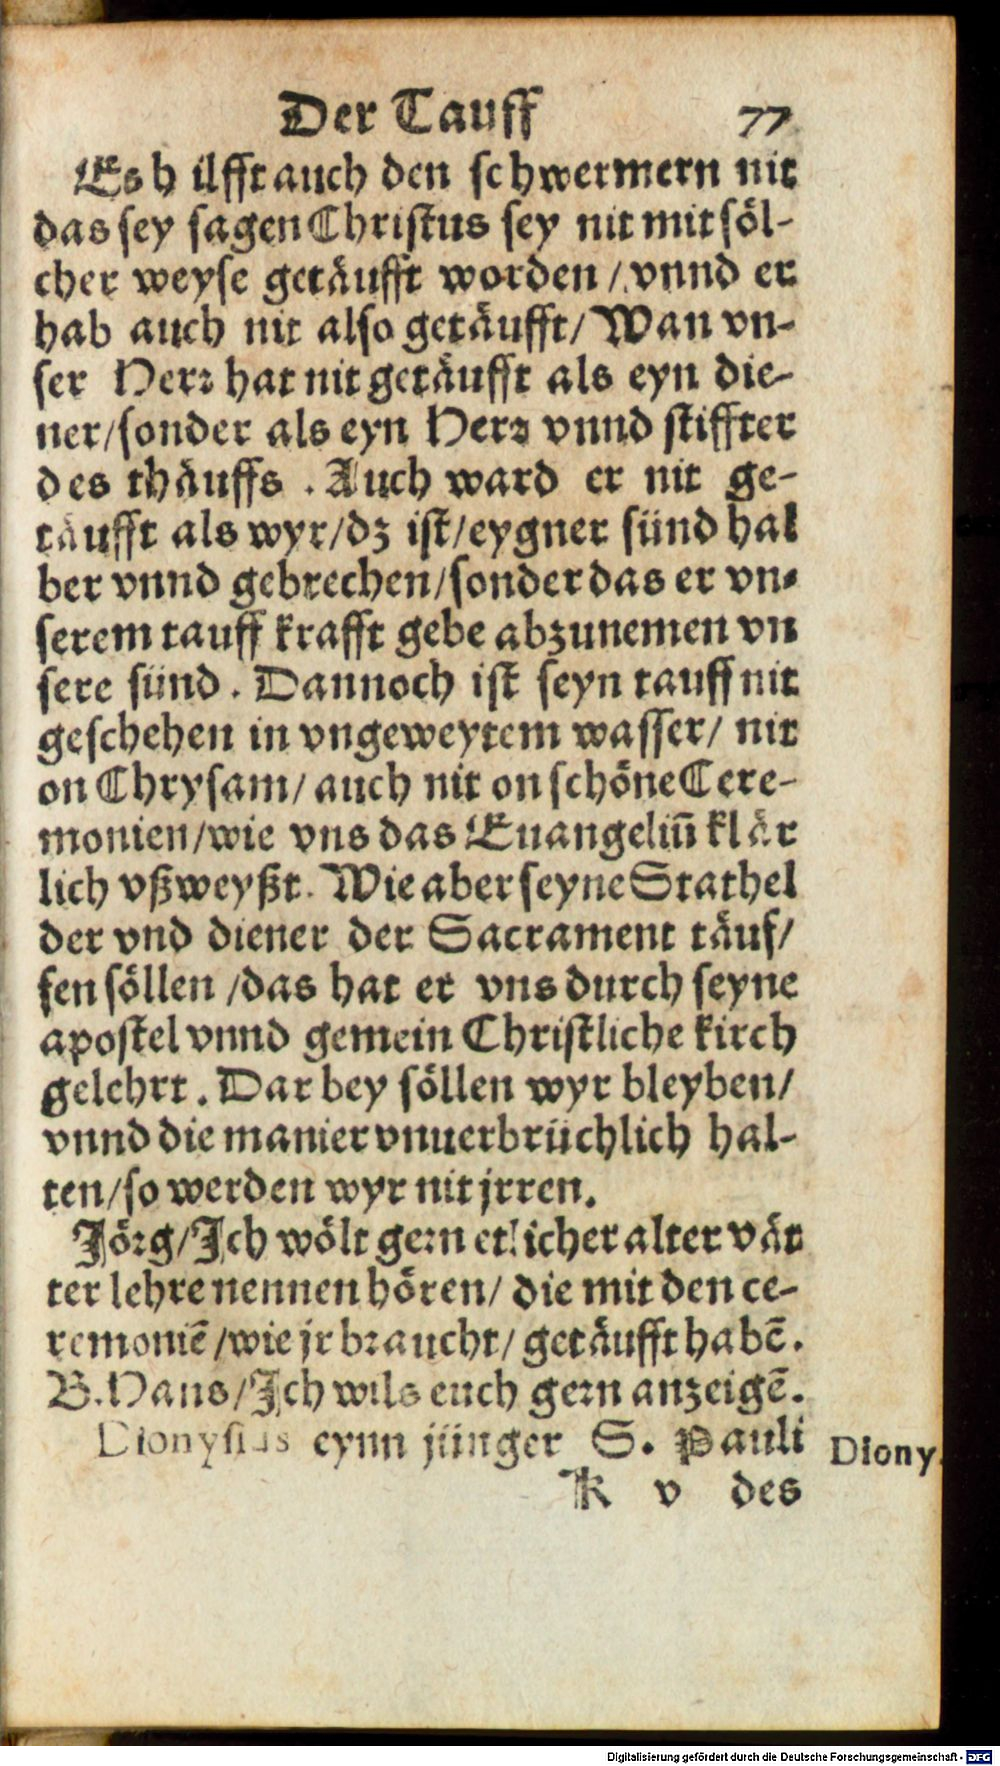 Der Tauff 77
Es hilfft auch den schwermern nit
das sey sagen Christus sey nit mit söl-
cher weyse getäufft worden / vnnd er
hab auch nit also getäufft / Wan vn-
ser Herr hat nit getäufft als eyn die-
ner / sonder als eyn Herr vnnd stiffter
des thäuffs . Auch ward er nit ge-
täufft als wyr / dz ist / eygner sünd hal
ber vnnd gebrechen / sonder das er vn-
serem tauff krafft gebe abzunemen vn
sere sünd . Dannoch ist seyn tauff nit
geschehen in vngeweytem wasser / nit
on Chrysam / auch nit on schöne Cere-
monien / wie vns das Euangeliū klär
lich vßweyßt. Wie aber seyne Stathel
der vnd diener der Sacrament täuf /
fen söllen / das hat er vns durch seyne
apostel vnnd gemein Christliche kirch
gelehrt . Dar bey söllen wyr bleyben /
vnnd die manier vnuerbrüchlich hal-
ten / so werden wyr nit jrren.
Jörg / Ich wölt gern etlicher alter vät
ter lehre nennen hören / die mit den ce-
remoniē / wie jr braucht / getäufft habē.
B. Hans / Ich wils euch gern anzeigē.
Dionysius eynn jünger S. Pauli
Diony.
K v des
Digitalisierung gefördert durch die Deutsche Forschungsgemeinschaft - DFG